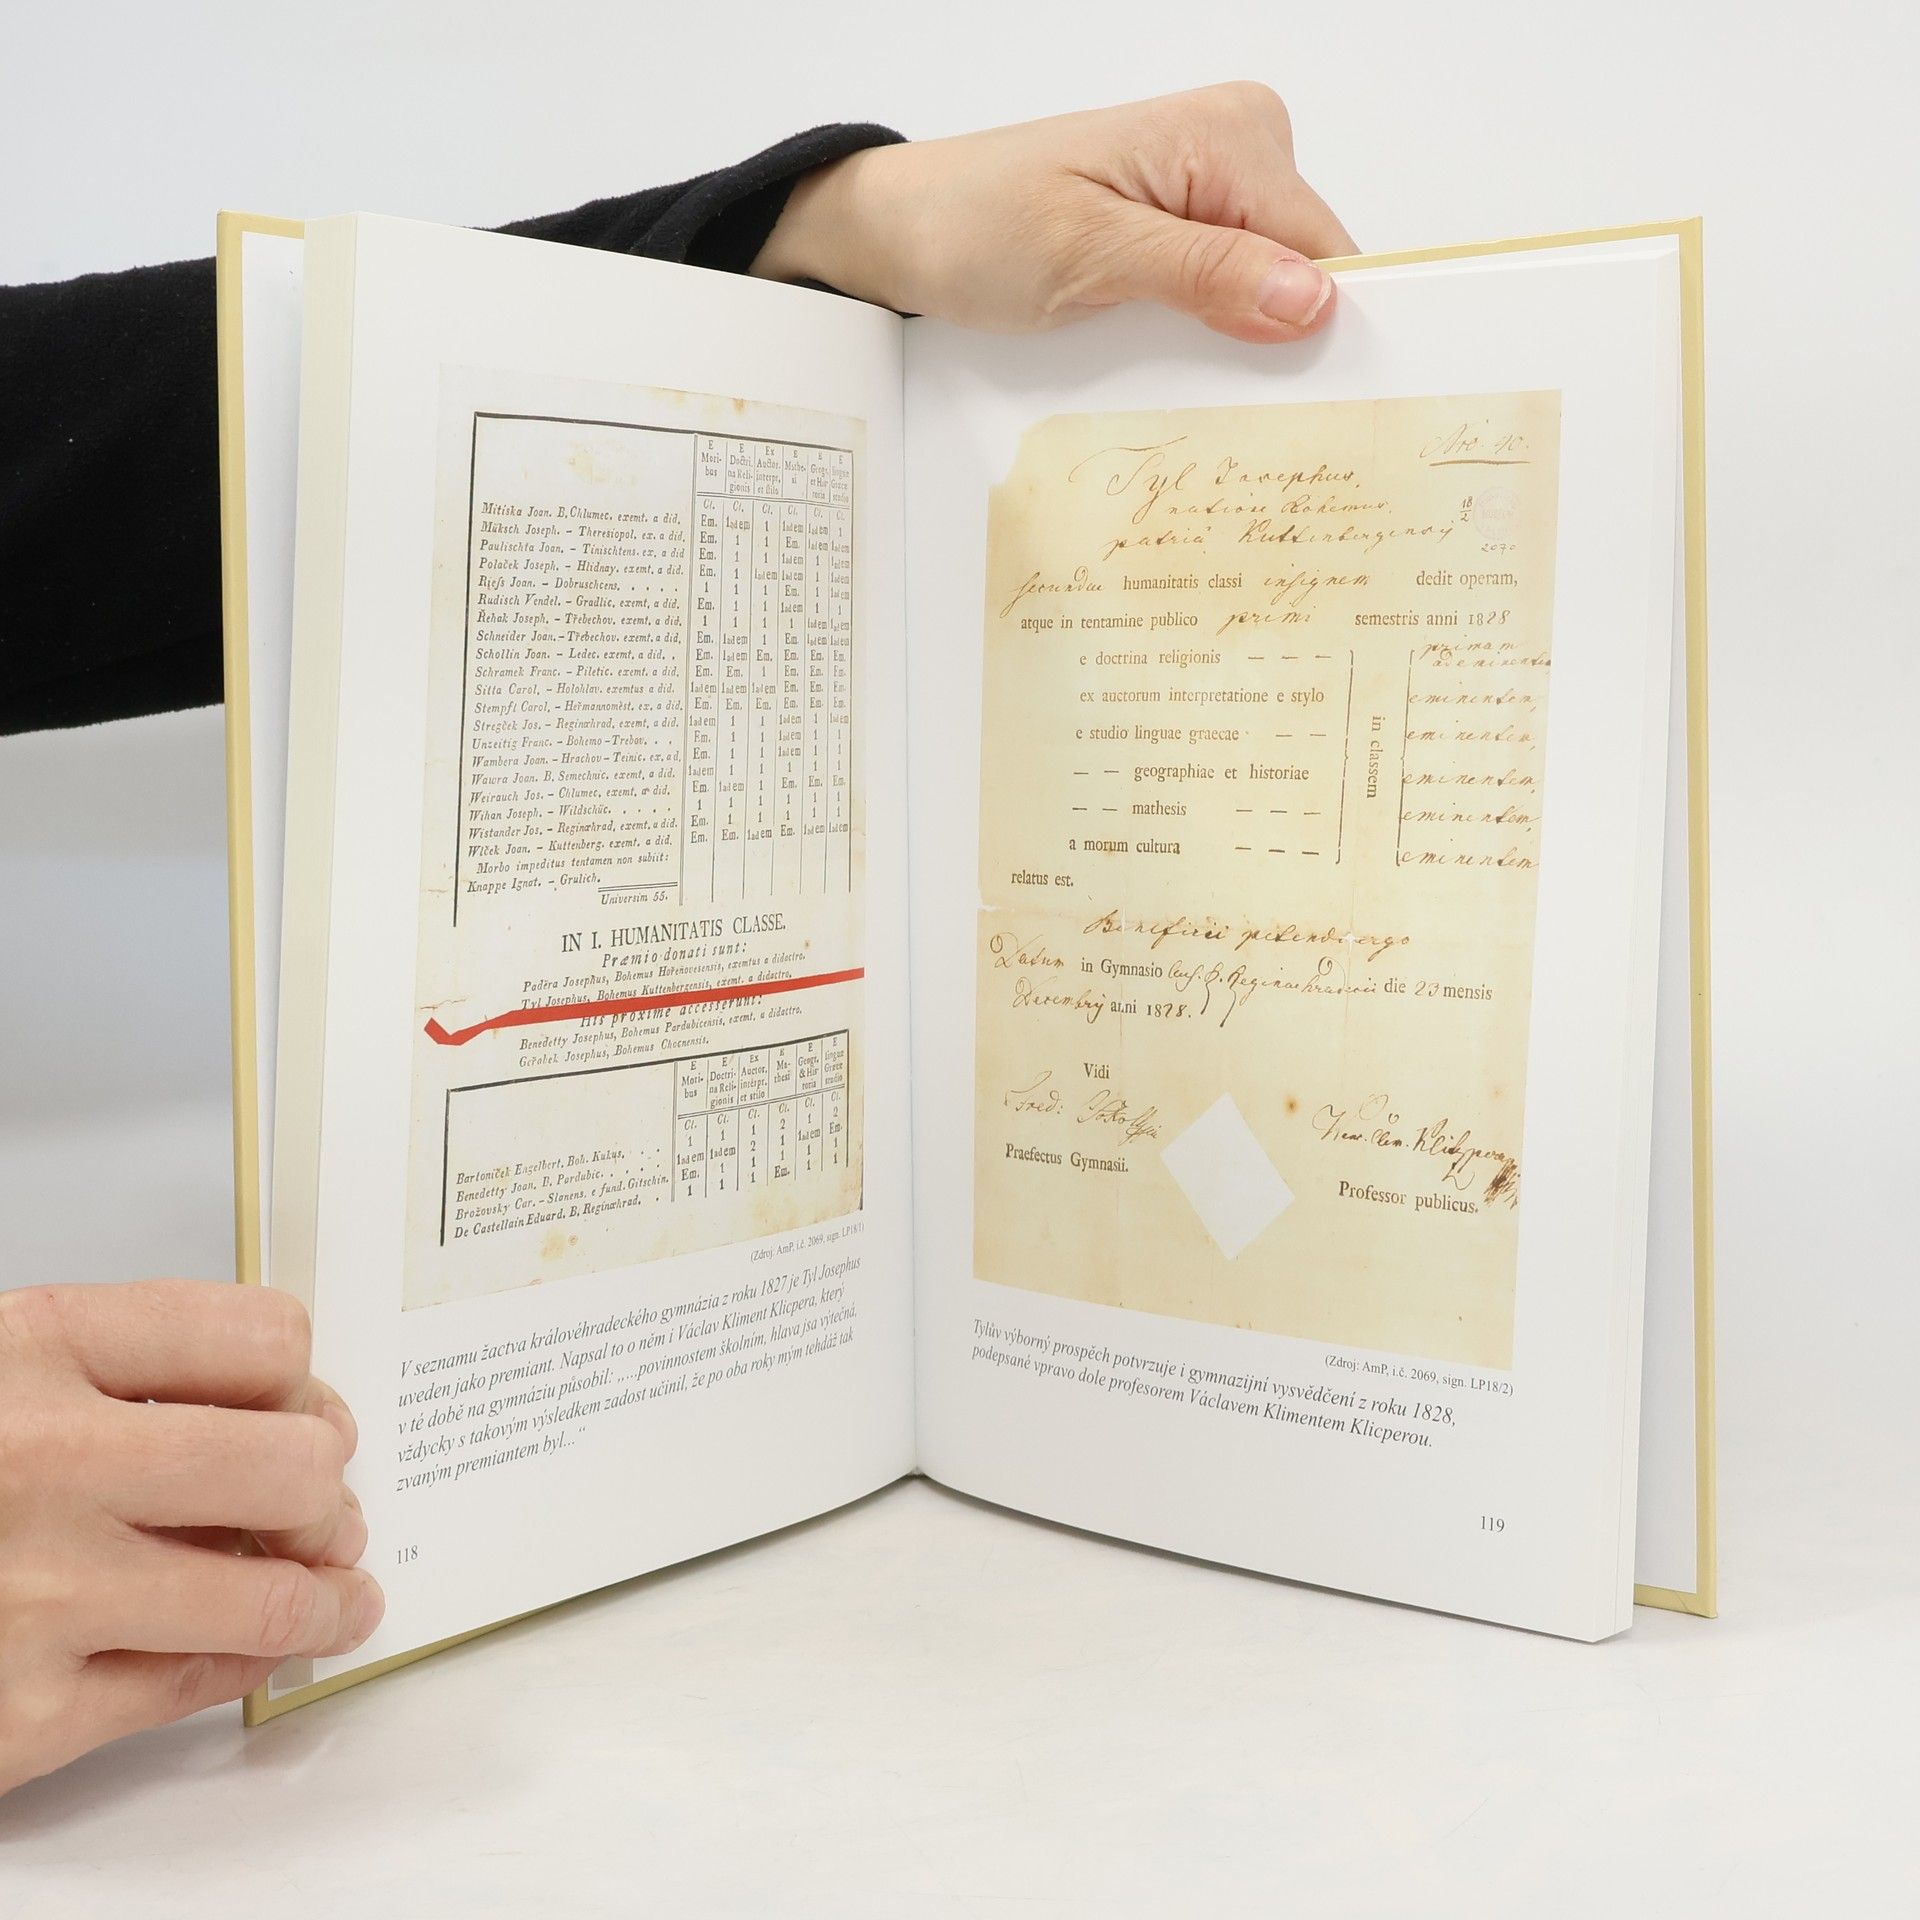 E Moribus | E Doctrina Religionis | Ex Auctor. interpr. et stilo | E Mathesi | E Geogr. et Historia | E linguæ Græcæ studio
Cl. Cl. Cl. Cl. Cl. Cl.
Mitiska Joan. B. Chlumec. exemt. a did.
Müksch Joseph. – Theresiopol. ex. a did.
Paulischta Joan. – Tinischtens. ex. a did
Polaček Joseph. – Hlidnay. exemt. a did.
Rieſs Joan. – Dobruschcens. . . . .
Rudisch Vendel. – Gradlic. exemt. a did.
Řehak Joseph. – Třebechov. exemt. a did.
Schneider Joan. – Třebechov. exemt. a did.
Schollin Joan. – Ledec. exemt. a did. .
Schramek Franc. – Piletic. exemt. a did.
Sitta Carol. – Holohlav. exemtus a did.
Stempfl Carol. – Heřmannoměst. ex. a did.
Stregček Jos. – Reginæhrad. exemt. a did.
Unzeitig Franc. – Bohemo-Trebov. . .
Wambera Joan. – Hrachov-Teinic. ex. a d.
Wawra Joan. B. Semechnic. exemt. a did.
Weirauch Jos. – Chlumec. exemt. a did.
Wihan Joseph. – Wildschüc. . . . .
Wistander Jos. – Reginæhrad. exemt. a did.
Wlček Joan. – Kuttenberg. exemt. a did.
Morbo impeditus tentamen non subiit:
Knappe Ignat. – Grulich.
Universim 55.
IN I. HUMANITATIS CLASSE.
Præmio donati sunt:
Paděra Josephus, Bohemus Hořeňovesensis, exemtus a didactro.
Tyl Josephus, Bohemus Kuttenbergensis, exemt. a didactro.
His proxime accesserunt:
Benedetty Josephus, Bohemus Pardubicensis, exemt. a didactro.
Geřabek Josephus, Bohemus Chocnensis.
E Moribus | E Doctrina Religionis | Ex Auctor. interpr. et stilo | E Mathesi | E Geogr. & Historia | E linguæ Græcæ studio
Cl. Cl. Cl. Cl. Cl. Cl.
Bartoniček Engelbert. Boh. Kukus. . . .
Benedetty Joan. B. Pardubic. . . . .
Brožovsky Car. – Slanens. e fund. Gitschin.
De Castellain Eduard. B. Reginæhrad. .
(Zdroj: AmP, i.č. 2069, sign. LP18/1)
V seznamu žactva královéhradeckého gymnázia z roku 1827 je Tyl Josephus
uveden jako premiant. Napsal to o něm i Václav Kliment Klicpera, který
v té době na gymnáziu působil: „...povinnostem školním, hlava jsa výtečná,
vždycky s takovým výsledkem zadost učinil, že po oba roky mým tehdáž tak
zvaným premiantem byl...“
118
Nro. 40.
Tyl Josephus,
natione Bohemus,
patriâ Kuttenbergensis
18/2
2070
secundae humanitatis classi insignem dedit operam,
atque in tentamine publico primi semestris anni 1828
e doctrina religionis – – – primam ad eminentem
ex auctorum interpretatione e stylo eminentem,
e studio linguae graecae – – eminentem,
– – geographiae et historiae eminentem,
– – mathesis – – – eminentem,
a morum cultura – – – eminentem
in classem
relatus est.
Beneficii petendi ergo
Datum in Gymnasio Caes. R. Reginaehradecii die 23 mensis
Decembris anni 1828.
Vidi
Praefectus Gymnasii.
Professor publicus.
(Zdroj: AmP, i.č. 2069, sign. LP18/2)
Tylův výborný prospěch potvrzuje i gymnazijní vysvědčení z roku 1828,
podepsané vpravo dole profesorem Václavem Klimentem Klicperou.
119